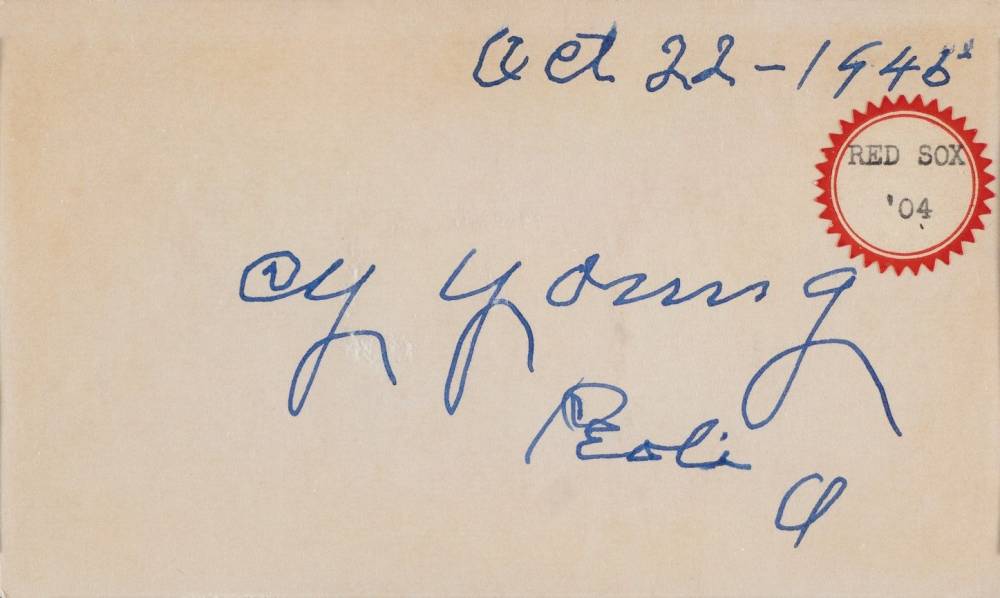 Oct 22-1945
RED SOX
'04
Cy Young
Peoli
O